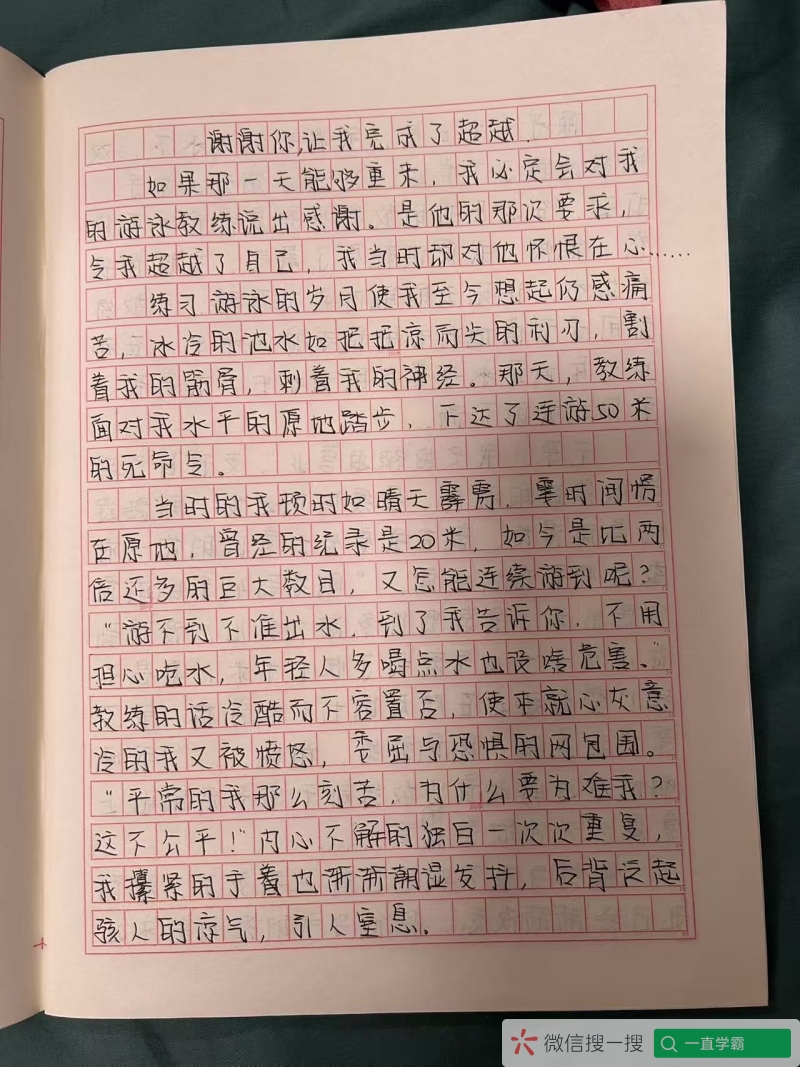 谢谢你,让我完成了超越.
如果那一天能够重来，我必定会对我
的游泳教练说出感谢。是他的那次要求，
令我超越了自己，我当时却对他怀恨在心……
练习游泳的岁月使我至今想起仍感痛
苦，冰冷的池水如把把凉而尖的利刃，割
着我的筋骨，刺着我的神经。那天，教练
面对我水平的原地踏步，下达了连游50米
的死命令。
当时的我顿时如晴天霹雳，霎时间愣
在原地，曾经的纪录是20米，如今是比两
倍还多的巨大数目，又怎能连续游到呢？
“游不到不准出水，到了我告诉你，不用
担心吃水，年轻人多喝点水也没啥危害。”
教练的话冷酷而不容置否，使本就心灰意
冷的我又被愤怒，委屈与恐惧的网包围。
“平常的我那么刻苦，为什么要为难我？
这不公平！”内心不解的独白一次次重复，
我攥紧的手着也渐渐潮湿发抖，后背泛起
骇人的凉气，引人窒息。
微信搜一搜
一直学霸